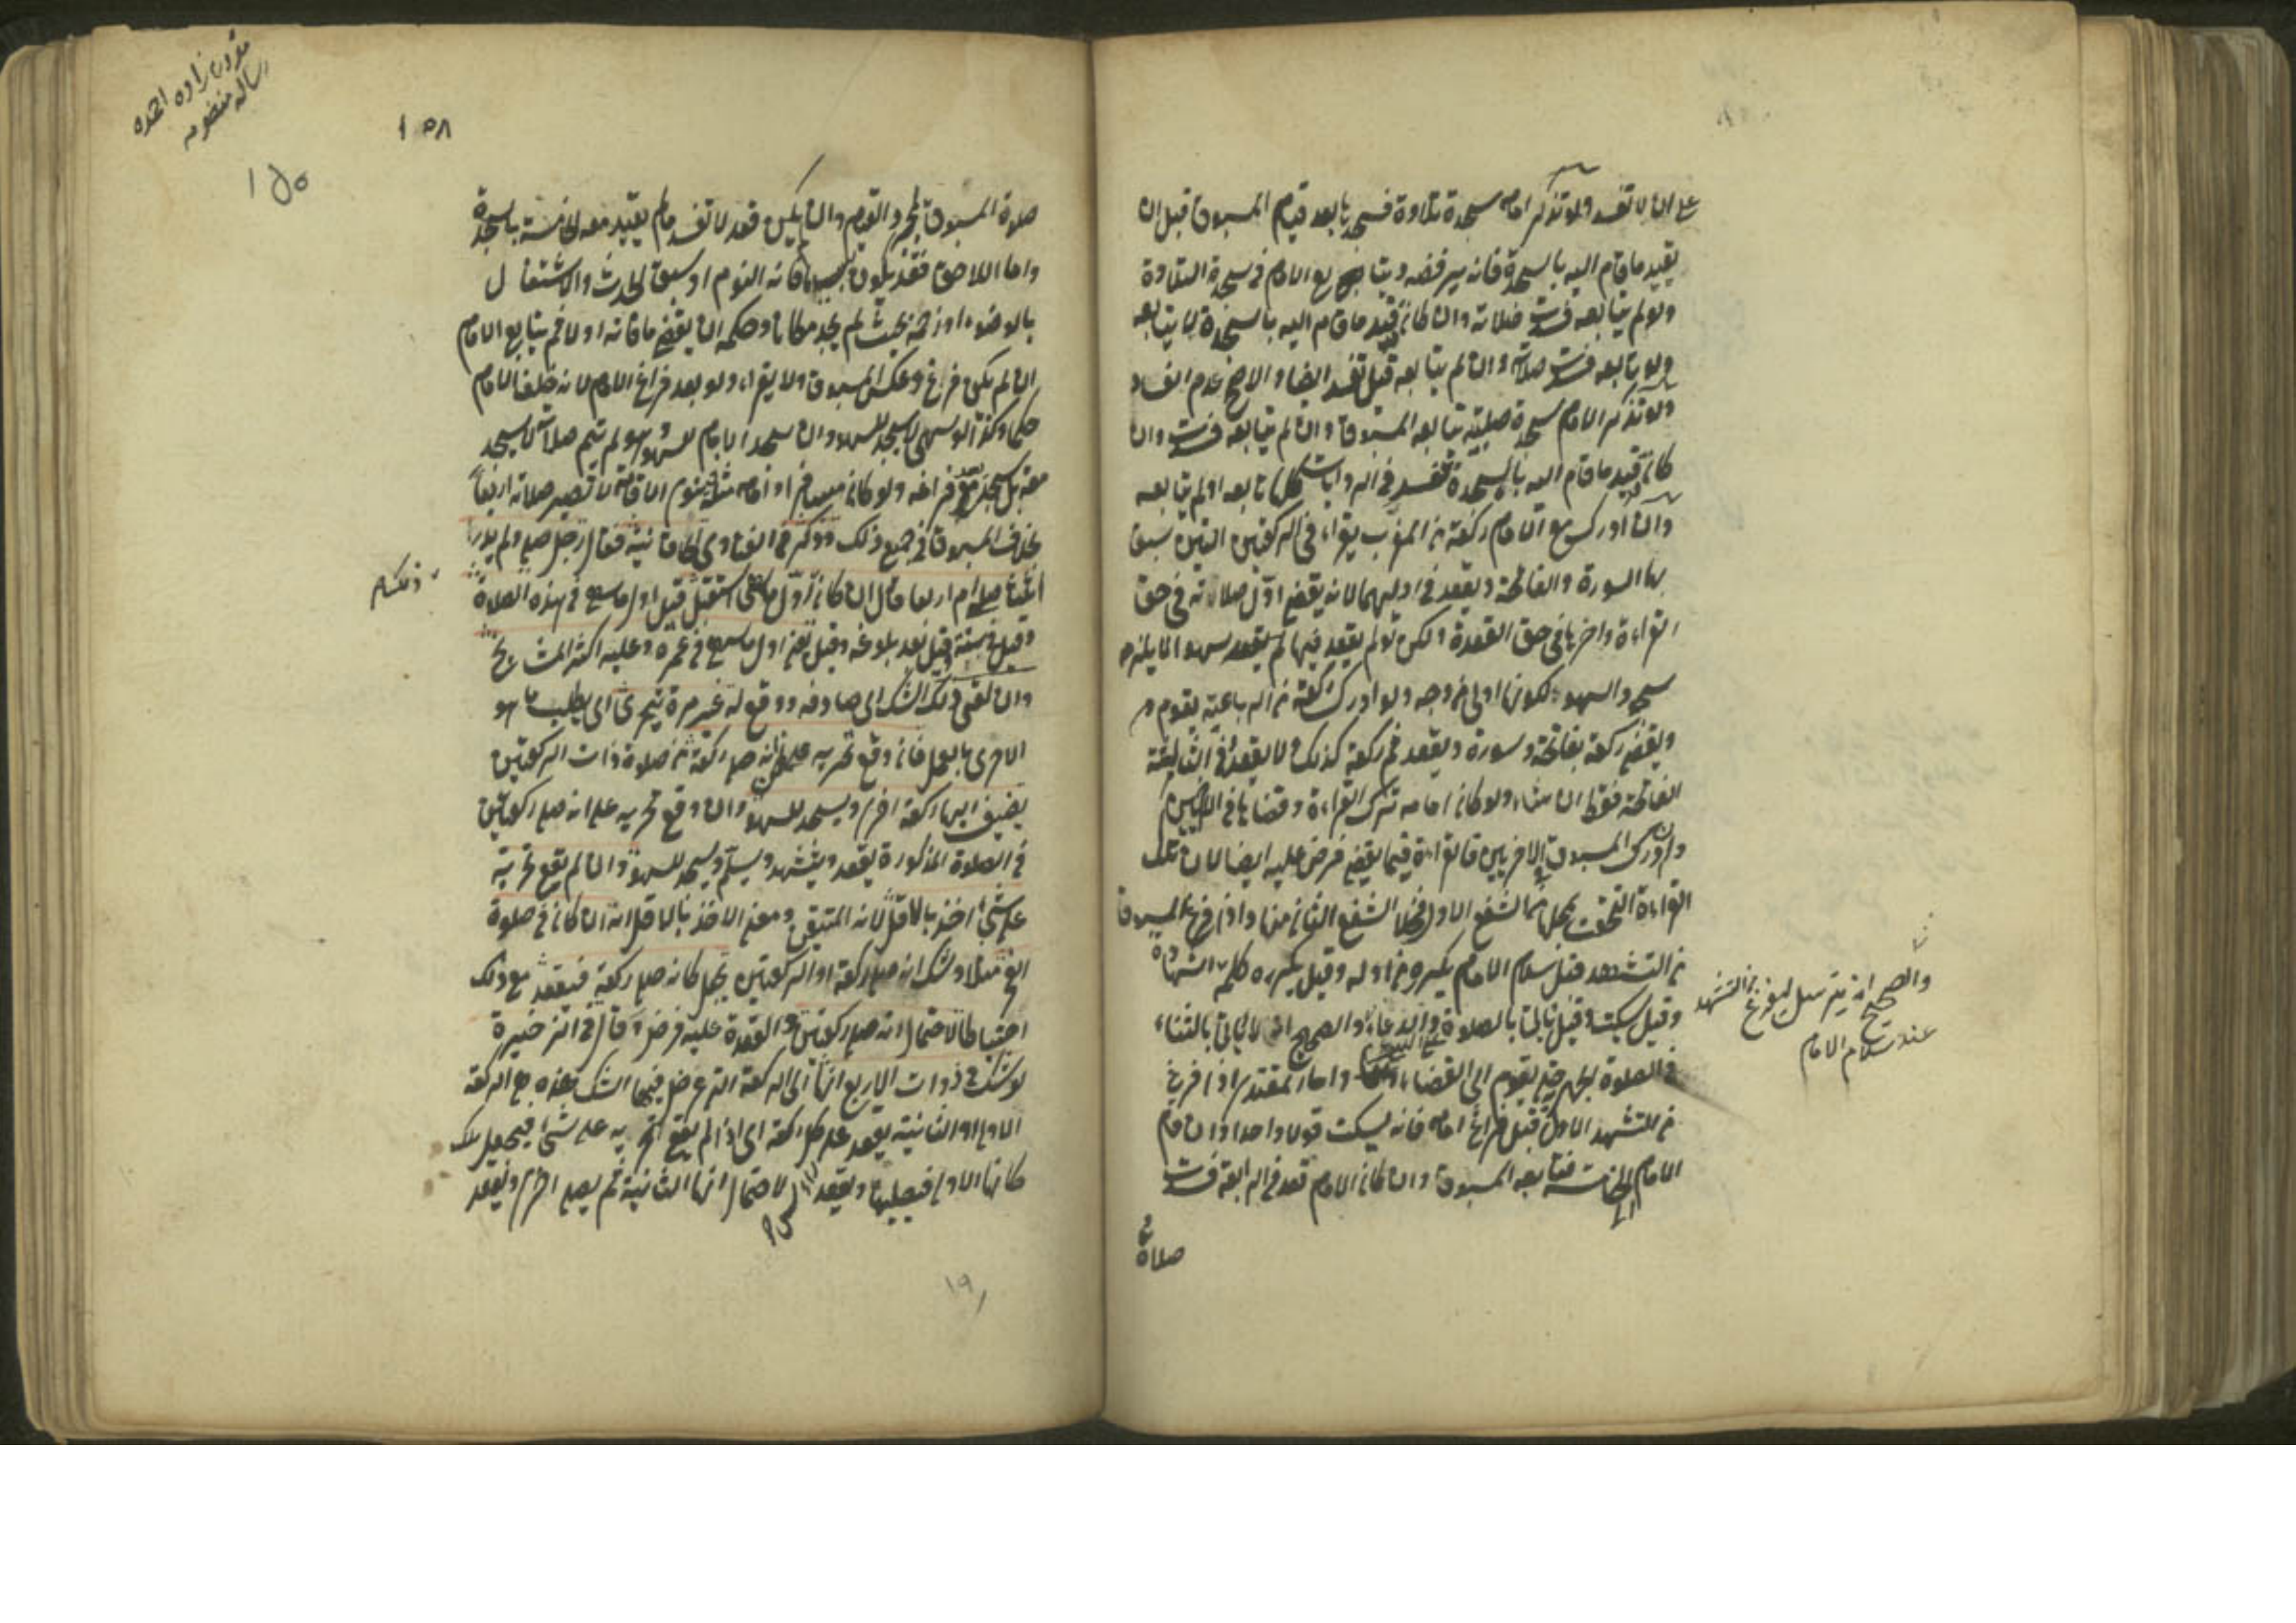 على ان لا تفسد ولو تذكر امامه سجدة تلاوة فسجدها بعد قيام المسبوق قبل ان
يقيد ما قام اليه بالسجدة فانه يرفضه ويتابع الامام في سجدة التلاوة
ولو لم يتابعه فسدت صلاته وان كان قيد ما قام اليه بالسجدة لا يتابعه
ولو تابعه فسدت صلاته وان لم يتابعه قيل تفسد ايضا والاصح عدم الفساد
ولو تذكر الامام سجدة صلبية يتابعه المسبوق وان لم يتابعه فسدت وان
كان قيد ما قام اليه بالسجدة تفسد في الروايات كلها تابعه او لم يتابعه
وان ادرك مع الامام ركعة من المغرب يقراء في الركعتين اللتين سبق
بها السورة والفاتحة ويقعد في اوليهما لانه يقضي اول صلاته في حق
القراءة واخرها في حق القعدة ولكن لو لم يقعد فيها سهوا لا يلزم
سجود السهو لكونها اولى من وجه ولو ادرك ركعة من الرباعية يقوم
ويقضي ركعة بفاتحة وسورة ويقعد ثم ركعة كذلك ولا يقعد وفي الثالثة
الفاتحة فقط ان شاء ولو كان امامه ترك القراءة وقضاها في الاخريين
وادرك المسبوق الاخريين فالقراءة فيما يقضي فرض عليه ايضا لان تلك
القراءة التحقت بمحلها من الشفع الاول فخلا الشفع الثاني منها واذا فرغ المسبوق
من التشهد قبل سلام الامام يكرره من اوله وقيل يكرر كلمة الشهادة
وقيل يسكت وقيل ياتي بالصلوة والدعاء والصحيح انه لا ياتي بالثناء
في الصلوة الجهرية حتى يقوم الى القضاء واما المقتدي اذا فرغ
من التشهد الاول قبل فراغ امامه فانه يسكت قولا واحدا وان قام
الامام الى الخامسة فتابعه المسبوق وان كان الامام قعد في الرابعة فسدت
صلاة
والصحيح انه يترسل ليفرغ من التشهد
عند سلام الامام
رساله منظومه
١٥٨
١٥٠
صلوة المسبوق وان لم يكن قعد لا تفسد ما لم يقيد معه الخامسة بالسجدة
واما اللاحق فقد يكون فاته النوم او سبق الحدث والاشتغال
بالوضوء او زحمة بحيث لم يجد مكانا وحكمه ان يقضي ما فاته اولا ثم يتابع الامام
ان لم يكن فرغ وعكس المسبوق ولا يقراء ولو بعد فراغ الامام لانه خلف الامام
حكما وكذا لو سهى لا يسجد للسهو وان سجد الامام لسهوه ولم يتم صلاته لا يسجد
معه بل يسجد بعد فراغه ولو كان مسافرا وامامه مثله فنوى الاقامة لا تصير صلاته اربعا
بخلاف المسبوق في جميع ذلك وذكر في الفتاوى الخاقانية فقال رجل صلى ولم يدر
اثلثا صلى ام اربعا قال ان كان اول ما سهى استقبل قيل اول ما سهى في هذه الصلاة
وقيل في سنته وقيل بعد بلوغه وقيل يعني اول ما سهى في عمره وعليه اكثر المشايخ
وان لقى ذلك الشك اى صادفه ووقع له غير مرة يتحرى اى يطلب ما هو
الاحرى بالعمل فان وقع تحريه على انه صلى ركعة من صلوة ذات الركعتين
يضيف اليها ركعة اخرى ويسجد للسهو وان وقع تحريه على انه صلى ركعتين
في الصلوة المذكورة يقعد ويتشهد ويسلم ويسجد للسهو وان لم يقع تحريه
على شئ اخذ بالاقل لانه المتيقن ومعنى الاخذ بالاقل انه ان كان في صلوة
الفجر مثلا وشك انه صلى ركعة او الركعتين يجعل كانه صلى ركعة فيقعد مع ذلك
احتياطا لاحتمال انه صلى ركعتين والقعدة عليه فرض وقال في الذخيرة
لو شك في ذوات الاربع انها اى الركعة التي عرض فيها الشك هذه هي الركعة
الاولى او الثانية يقعد على كل ركعة اى اذا لم يقع تحريه على شئ فيجعل تلك
كانها الاولى فيصليها ويقعد لاحتمال انها الثانية ثم يصلي اخرى ويقعد
١٩